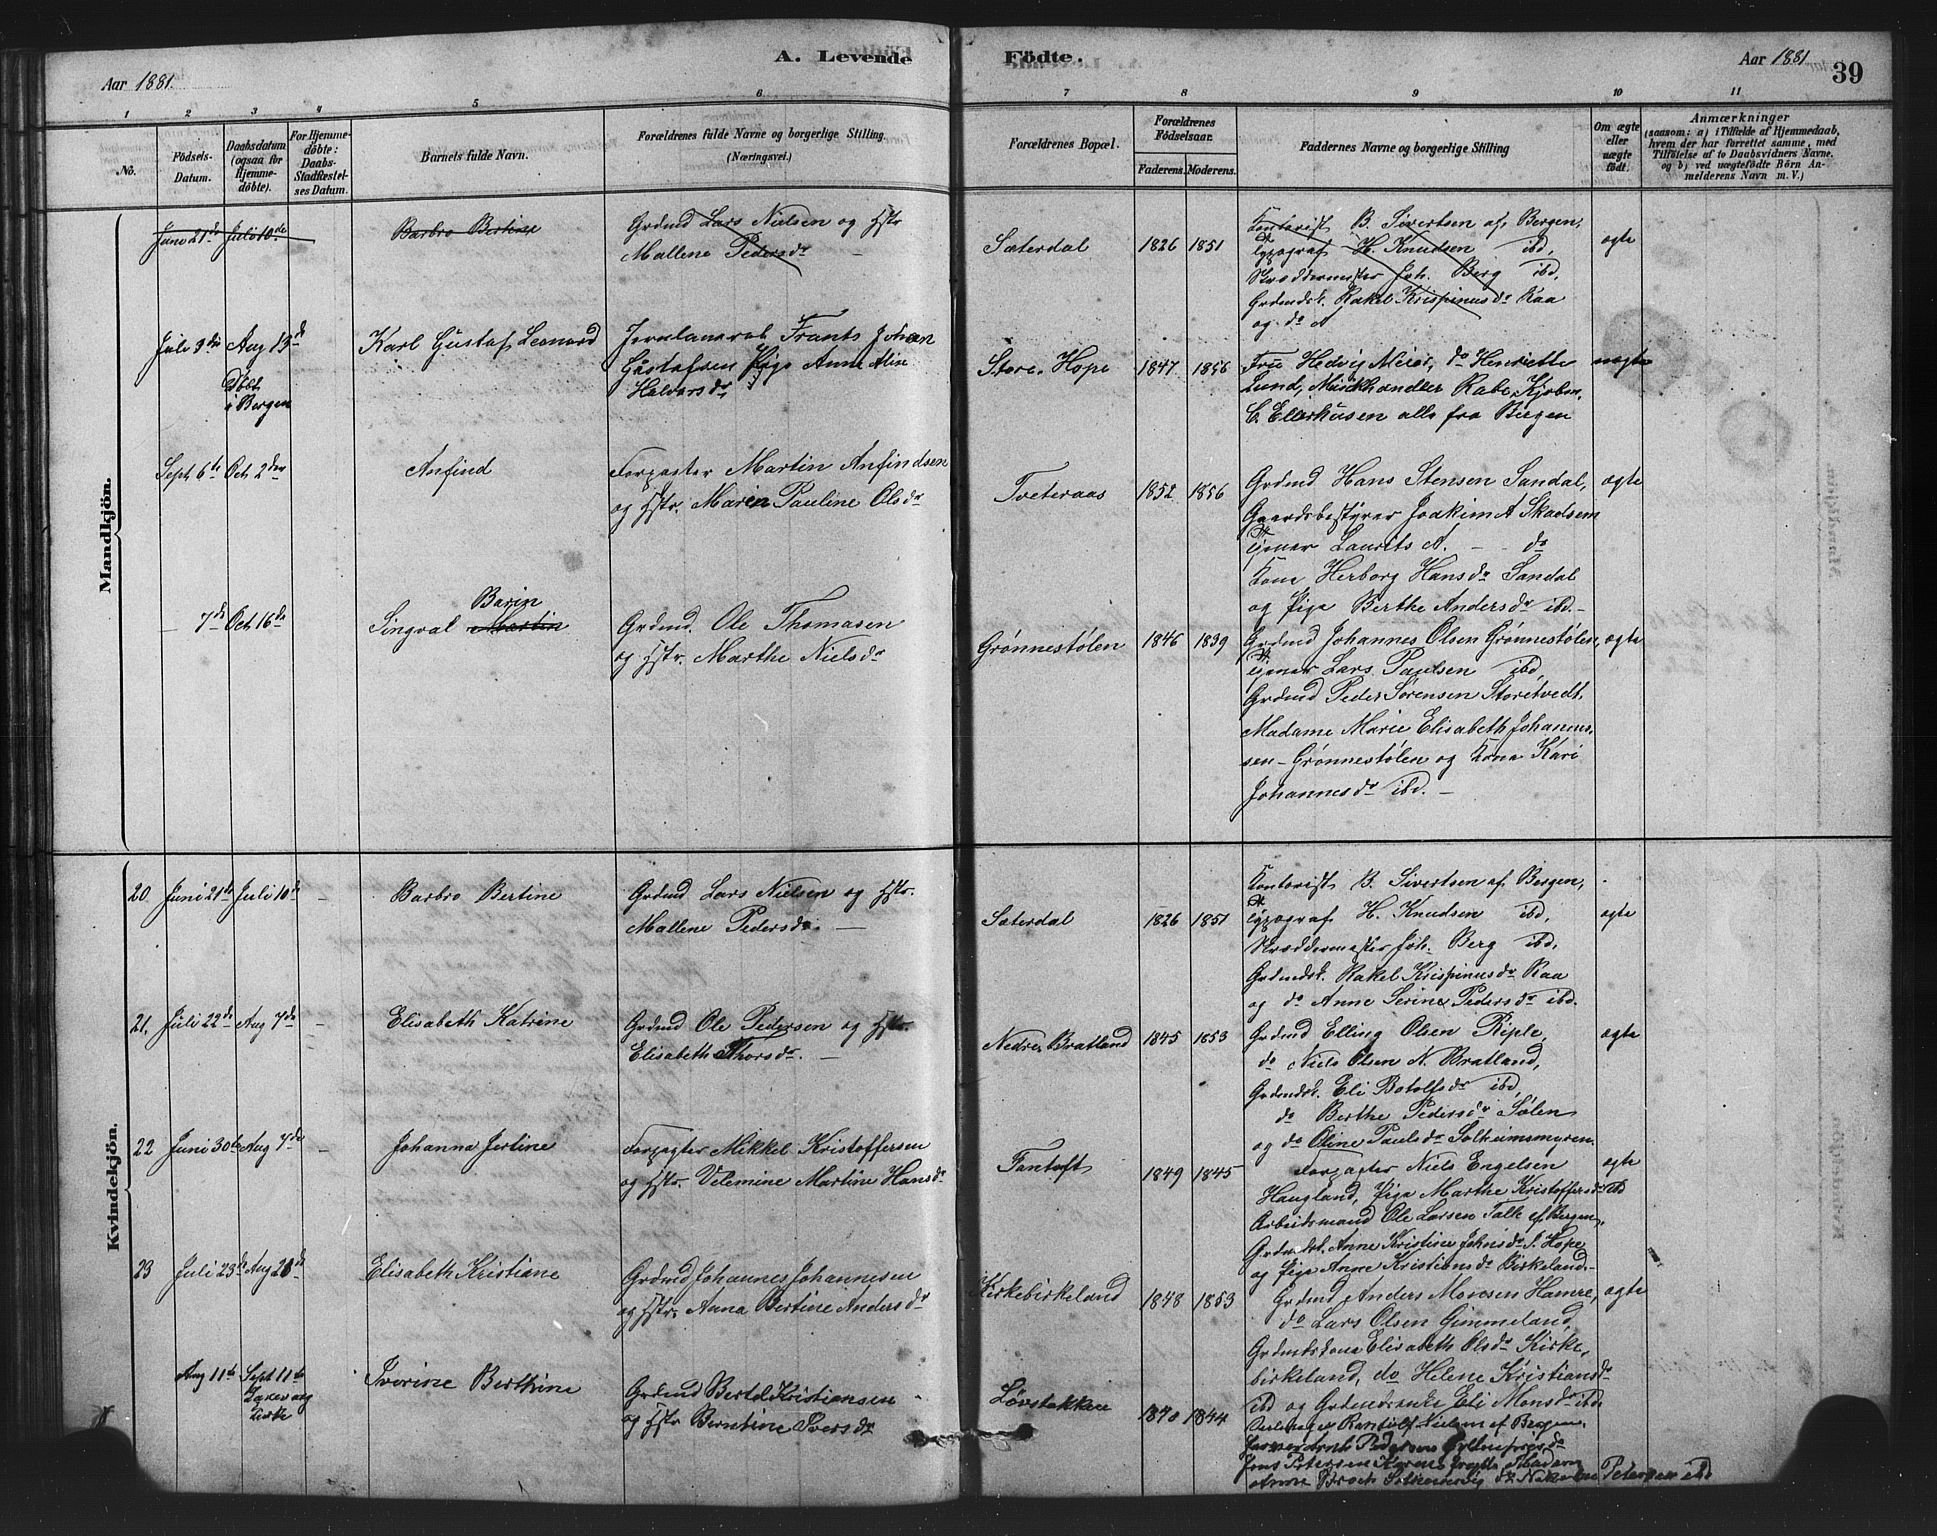 Aar 1881.
A. Levende
Födte.
Aar 1881
39
1
2
3
4
5
6
7
8
9
10
11
No.
Födsels-
Datum.
Daabsdatum
(ogsaa for
Hjemme-
döbte).
For Hjemme-
döbte:
Daabs-
Stadfæstel-
ses Datum.
Barnets fulde Navn.
Forældrenes fulde Navne og borgerlige Stilling.
(Næringsvei.)
Forældrenes Bopæl.
Forældrenes
Födselsaar.
Faderens.
Moderens.
Faddernes Navne og borgerlige Stilling
Om ægte
eller
uægte
födt.
Anmærkninger
(saasom: a) i Tilfælde af Hjemmedaab,
hvem der har forrettet samme, med
Tilföielse af to Daabsvidners Navne.
og b) ved uægtefödte Börn An-
melderens Navn m. V.)
Mandkjön.
Juni 21de Juli 10de
Barbro Bertine
Grdmd Lars Nielsen og Hstr
Mallene Pedersdr
Sæterdal
1826 1851
Kontorist B. Sivertsen af Bergen,
Typograf H. Knudsen ibd,
Skræddermester Joh. Berg ibd,
Grdmdsk. Rakel Krispinusdr Raa
og do A
ægte
Juli 3die Aug 13de
Döbt
i Bergen
Karl Gustaf Leonard
Frants Johan
Gustafsen Pige Anne Aline
Halvorsdr
Store Hope
1847 1856
Frue Hedvig Meier, do Henriette
Lund, Musikhandler Rabe, Kjøbm.
C. Ellerhusen alle fra Bergen
uægte
Sept 6te Oct 2den
Anfind
Forpagter Martin Anfindsen
og Hstr. Maren Pauline Olsdr
Tveteraas
1852 1856
Grdmd Hans Stensen Sandal,
Gaardsbestyrer Joakim A Skadsem
Tjener Laurits A. - do
Kone Herborg Hansdr Sandal
og Pige Berthe Andersdr ibd.-
ægte
- 7de Oct 16de
Singval Martin
Barin
Grdmd. Ole Thomasen
og Hstr. Marthe Nielsdr
Grønnestølen
1846 1839
Grdmd Johannes Olsen Grønnestølen,
Tjener Lars Paulsen ibd,
Grdmd Peder Sørensen Storetvedt,
Madame Marie Elisabeth Johannes-
sen - Grønnestølen og Kone Kari
Johannesdr ibd. -
ægte
Kvindekjön.
20 Juni 21de Juli 10de -
Barbro Bertine
Grdmd Lars Nielsen og Hstr.
Mallene Pedersdr. -
Sæterdal
1826 1851
Kontorist B. Sivertsen af Bergen,
Typograf H. Knudsen ibd,
Skræddermester Joh. Berg ibd.
Grdmdsk. Rakel Krispinusdr Raa
og do Anne Serine Pedersdr ibd.
ægte
21. Juli 22de Aug 7de -
Elisabeth Katrine
Grdmd Ole Pedersen og Hstr.
Elisabeth Thorsdr. -
Nedre Bratland
1845 1853
Grdmd Elling Olsen Riple,
do Niels Olsen N. Bratland,
Grdmdsk. Eli Botolfsdr ibd,
do Berthe Pedersdr Sølen
og do Oline Paulsdr Solheimsmyren
ægte
22 Juni 30te Aug 7de -
Johanna Jertine
Forpagter Mikkel Kristoffersen
og Hstr. Velemine Martine Hansdr
Fantoft
1849 1845
Forpagter Niels Engelsen
Haugland, Pige Marthe Kristoffersdr ibd
Arbeidsmand Ole Larsen Talk af Bergen,
Grdmdsk. Anne Kristine Johnsdr S. Hope
og Pige Anne Kristiansdr Birkeland.-
ægte
23 Juli 23de Aug 28de
Elisabeth Kristiane
Grdmd Johannes Johannesen
og Hstr. Anna Bertine Andersdr
Kirkebirkeland
1848 1853
Grdmd Anders Monsen Hamre,
do Lars Olsen Gimmeland,
Grdmdskone Elisabeth Olsdr Kirke-
birkeland, do Helene Kristiansdr
ibd og Grdmdsenke Eli Monsdr ibd
ægte
Aug 11te Sept 11te
kirke
Iverine Berthine
Grdmd Bertel Kristiansen
og Hstr Berntine Iversdr
Løvstakken
1840 1844
Nielsen af Bergen
Pedersen
Jens Petersen Madam
Anne Petersen ibd